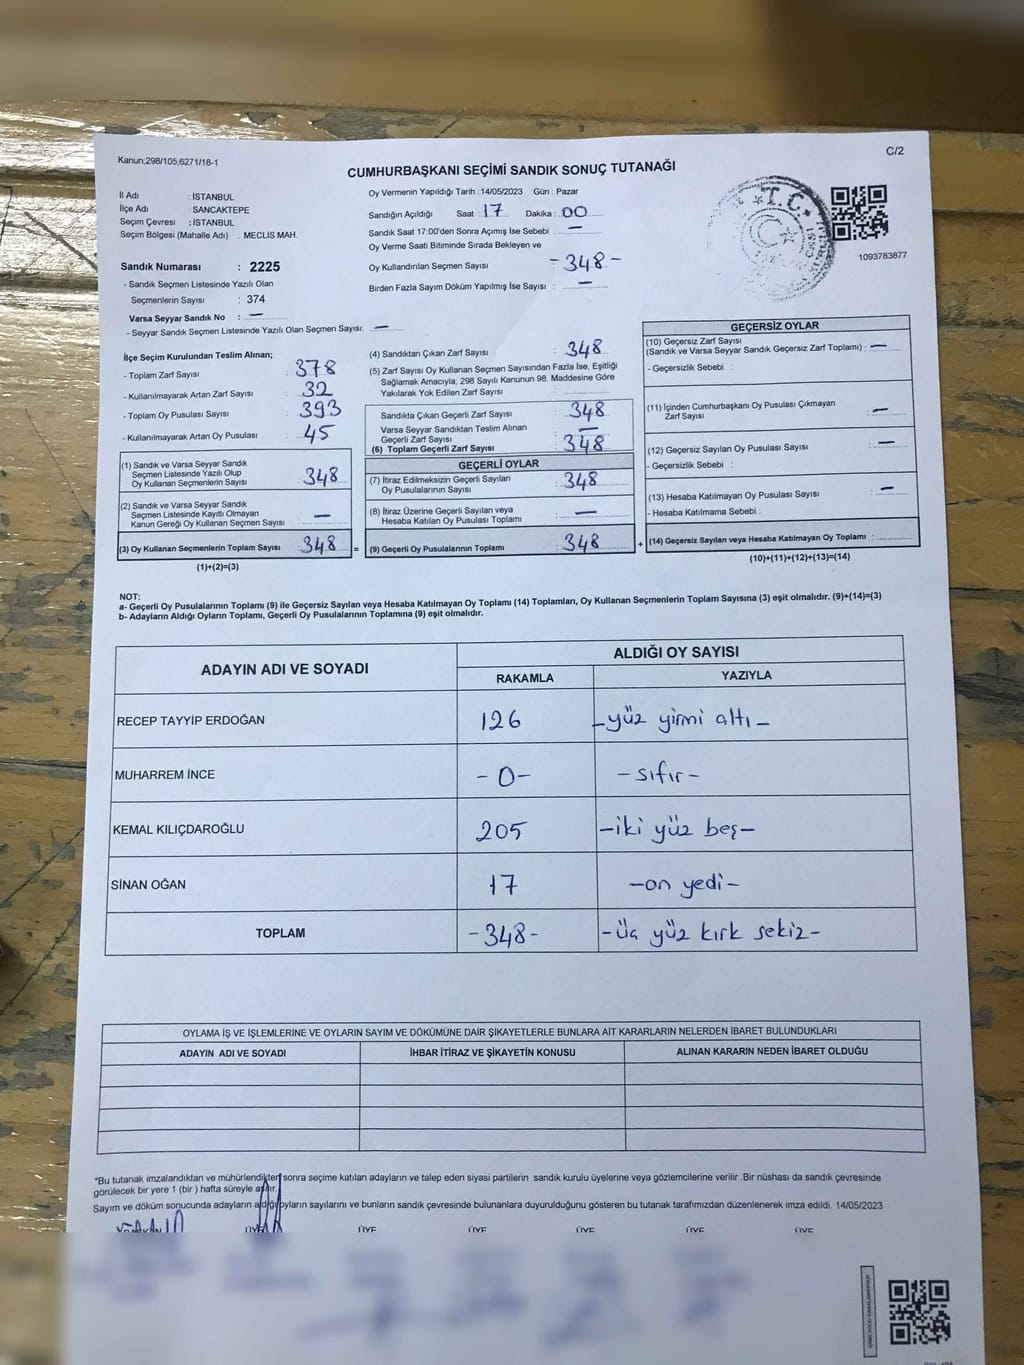 Kanun,298/105,6271/18-1
C/2
CUMHURBAŞKANI SEÇİMİ SANDIK SONUÇ TUTANAĞI
İl Adı : İSTANBUL
İlçe Adı : SANCAKTEPE
Seçim Çevresi : İSTANBUL
Seçim Bölgesi (Mahalle Adı) : MECLİS MAH.
Sandık Numarası : 2225
- Sandık Seçmen Listesinde Yazılı Olan
Seçmenlerin Sayısı : 374
Varsa Seyyar Sandık No : —
- Seyyar Sandık Seçmen Listesinde Yazılı Olan Seçmen Sayısı: —
Oy Vermenin Yapıldığı Tarih : 14/05/2023 Gün : Pazar
Sandığın Açıldığı Saat 17 Dakika : 00
Sandık Saat 17:00'den Sonra Açımış İse Sebebi : —
Oy Verme Saati Bitiminde Sırada Bekleyen ve
Oy Kullandırılan Seçmen Sayısı - 348 -
Birden Fazla Sayım Döküm Yapılmış İse Sayısı : —
T.C.
1093783877
İlçe Seçim Kurulundan Teslim Alınan;
- Toplam Zarf Sayısı : 378
- Kullanılmayarak Artan Zarf Sayısı : 32
- Toplam Oy Pusulası Sayısı : 393
- Kullanılmayarak Artan Oy Pusulası : 45
(1) Sandık ve Varsa Seyyar Sandık
Seçmen Listesinde Yazılı Olup
Oy Kullanan Seçmenlerin Sayısı : 348
(2) Sandık ve Varsa Seyyar Sandık
Seçmen Listesinde Kayıtlı Olmayan
Kanun Gereği Oy Kullanan Seçmen Sayısı : —
(3) Oy Kullanan Seçmenlerin Toplam Sayısı : 348 =
(1)+(2)=(3)
(4) Sandıktan Çıkan Zarf Sayısı : 348
(5) Zarf Sayısı Oy Kullanan Seçmen Sayısından Fazla İse, Eşitliği
Sağlamak Amacıyla, 298 Sayılı Kanunun 98. Maddesine Göre
Yakılarak Yok Edilen Zarf Sayısı :
Sandıkta Çıkan Geçerli Zarf Sayısı : 348
Varsa Seyyar Sandıktan Teslim Alınan
Geçerli Zarf Sayısı : —
(6) Toplam Geçerli Zarf Sayısı : 348
GEÇERLİ OYLAR
(7) İtiraz Edilmeksizin Geçerli Sayılan
Oy Pusulalarının Sayısı : 348
(8) İtiraz Üzerine Geçerli Sayılan veya
Hesaba Katılan Oy Pusulası Toplamı : —
(9) Geçerli Oy Pusulalarının Toplamı : 348 +
GEÇERSİZ OYLAR
(10) Geçersiz Zarf Sayısı
(Sandık ve Varsa Seyyar Sandık Geçersiz Zarf Toplamı) : —
- Geçersizlik Sebebi :
(11) İçinden Cumhurbaşkanı Oy Pusulası Çıkmayan
Zarf Sayısı : —
(12) Geçersiz Sayılan Oy Pusulası Sayısı : —
- Geçersizlik Sebebi :
(13) Hesaba Katılmayan Oy Pusulası Sayısı : —
- Hesaba Katılmama Sebebi :
(14) Geçersiz Sayılan veya Hesaba Katılmayan Oy Toplamı :
(10)+(11)+(12)+(13)=(14)
NOT:
a- Geçerli Oy Pusulalarının Toplamı (9) ile Geçersiz Sayılan veya Hesaba Katılmayan Oy Toplamı (14) Toplamları, Oy Kullanan Seçmenlerin Toplam Sayısına (3) eşit olmalıdır. (9)+(14)=(3)
b- Adayların Aldığı Oyların Toplamı, Geçerli Oy Pusulalarının Toplamına (9) eşit olmalıdır.
ADAYIN ADI VE SOYADI ALDIĞI OY SAYISI
RAKAMLA YAZIYLA
RECEP TAYYİP ERDOĞAN 126 - yüz yirmi altı -
MUHARREM İNCE - 0 - - sıfır -
KEMAL KILIÇDAROĞLU 205 - iki yüz beş -
SİNAN OĞAN 17 - on yedi -
TOPLAM - 348 - - üç yüz kırk sekiz -
OYLAMA İŞ VE İŞLEMLERİNE VE OYLARIN SAYIM VE DÖKÜMÜNE DAİR ŞİKAYETLERLE BUNLARA AİT KARARLARIN NELERDEN İBARET BULUNDUKLARI
ADAYIN ADI VE SOYADI İHBAR İTİRAZ VE ŞİKAYETİN KONUSU ALINAN KARARIN NEDEN İBARET OLDUĞU
*Bu tutanak imzalandıktan ve mühürlendikten sonra seçime katılan adayların ve talep eden siyasi partilerin sandık kurulu üyelerine veya gözlemcilerine verilir .Bir nüshası da sandık çevresinde
görülecek bir yere 1 (bir ) hafta süreyle asılır.
Sayım ve döküm sonucunda adayların aldığı oyların sayılarını ve bunların sandık çevresinde bulunanlara duyurulduğunu gösteren bu tutanak tarafımızdan düzenlenerek imza edildi. 14/05/2023
ÜYE ÜYE ÜYE ÜYE ÜYE